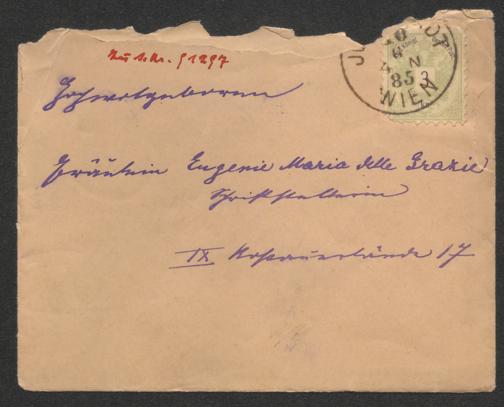 Hochwohlgeboren
Fräulein Eugenie Maria delle Grazie
Schriftstellerin
IX Rossauerlände 17
WIEN
85